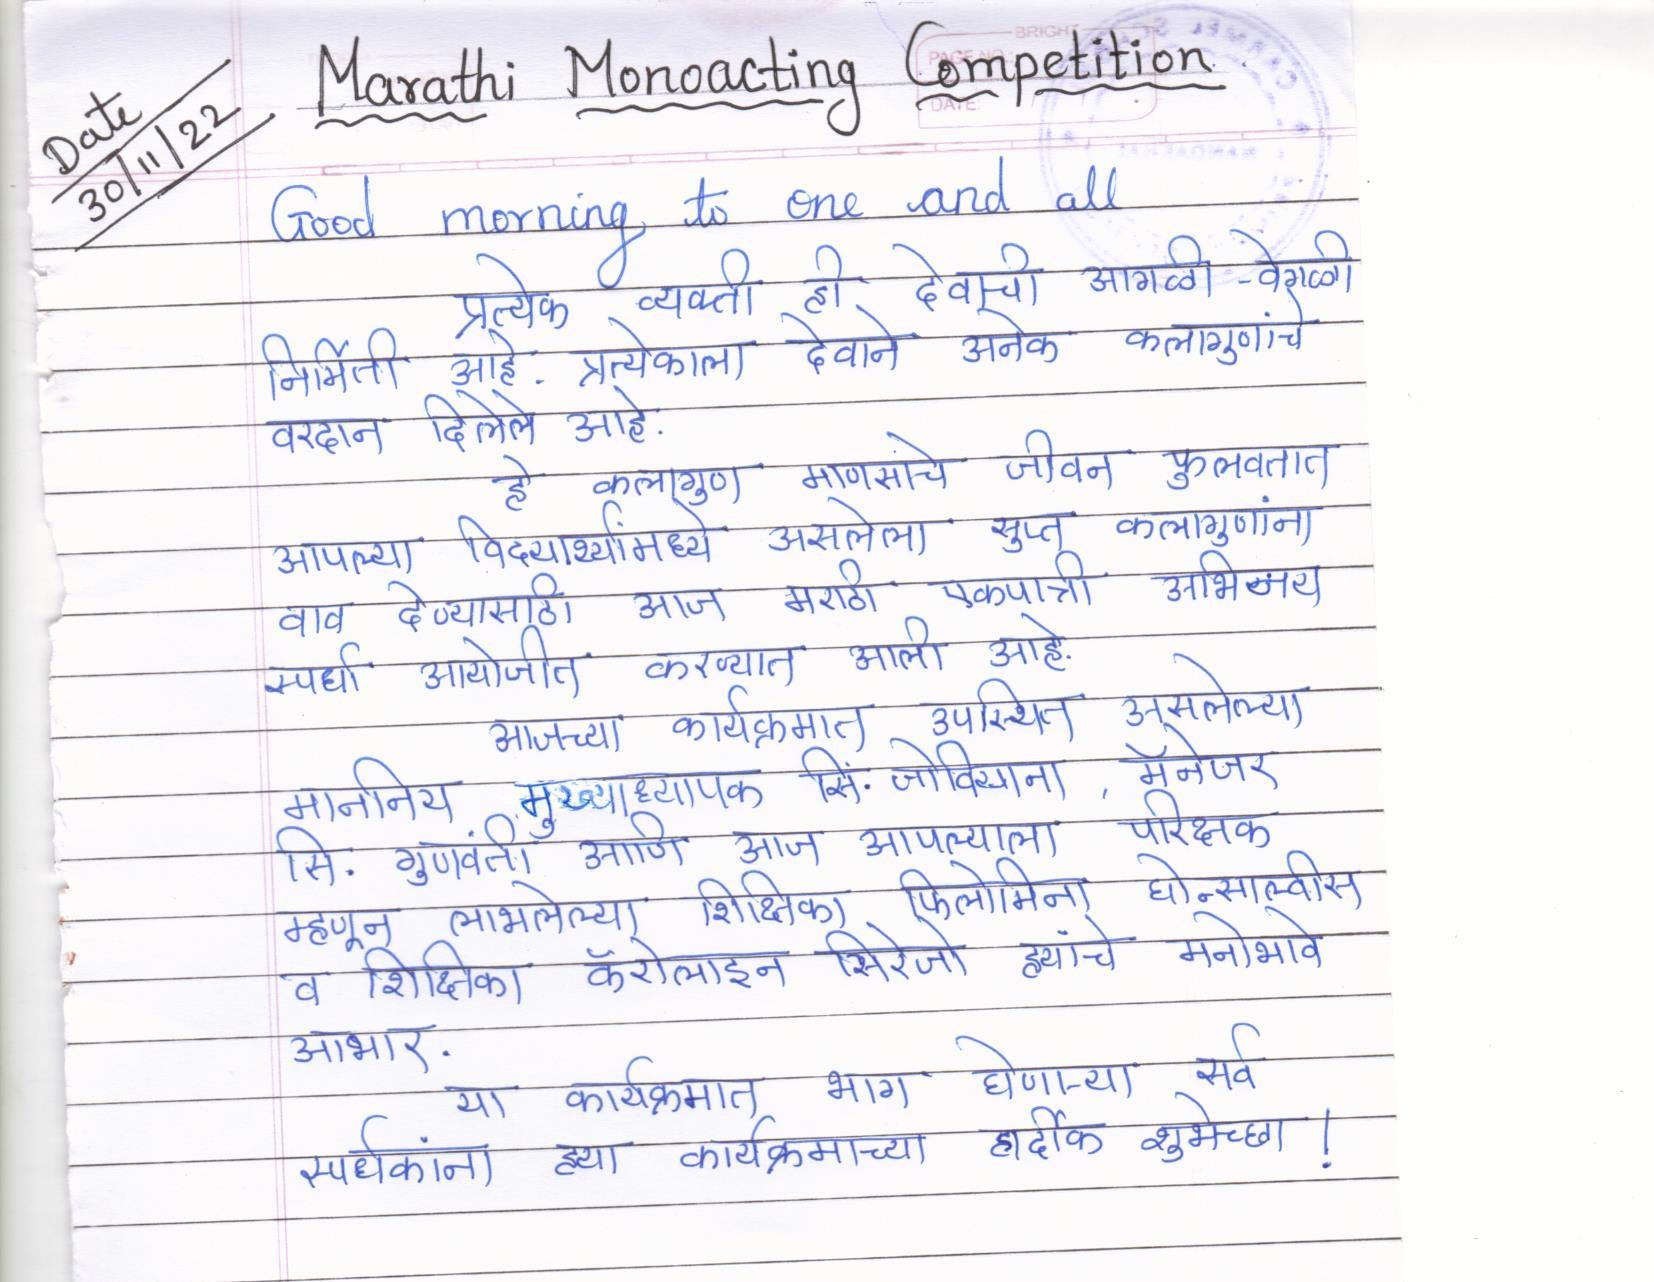 Marathi Monoacting Competition
Date
30/11/22
Good morning to one and all
प्रत्येक व्यक्ती ही देवाची आगळी-वेगळी
निर्मिती आहे. प्रत्येकाला देवाने अनेक कलागुणांचे
वरदान दिलेले आहे.
हे कलागुण माणसांचे जीवन फुलवतात
आपल्या विद्यार्थ्यांमध्ये असलेला सुप्त कलागुणांना
वाव देण्यासाठी आज मराठी एकपात्री अभिनय
स्पर्धा आयोजीत करण्यात आली आहे.
आजच्या कार्यक्रमात उपस्थित असलेल्या
माननिय मुख्याध्यापक सि. जोवियाना, मॅनेजर
सि. गुणवंती आणि आज आपल्याला परिक्षक
म्हणून लाभलेल्या शिक्षिका फिलोमिना घोन्साल्वीस
व शिक्षिका कॅरोलाइन सिरेजो ह्यांचे मनोभावे
आभार.
या कार्यक्रमात भाग घेणाऱ्या सर्व
स्पर्धकांना ह्या कार्यक्रमाच्या हार्दीक शुभेच्छा!
BRIGHT
PAGE NO.:
DATE: